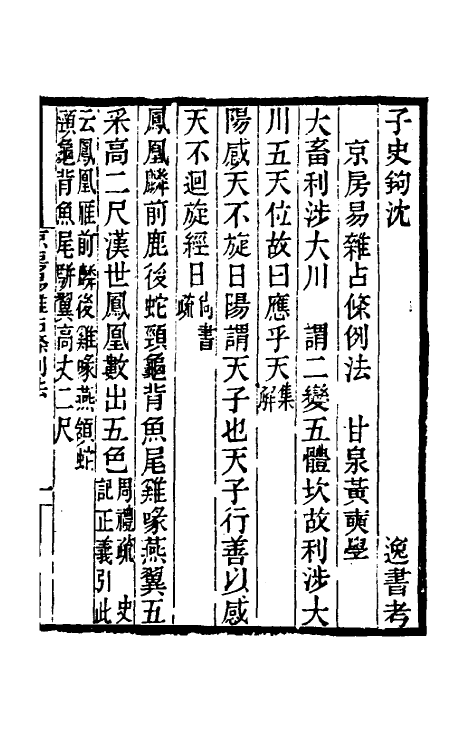 子史鉤沈　逸書考
京房易雜占條例法　甘泉黃奭學
大畜利涉大川　謂二變五體坎故利涉大
川五天位故曰應乎天集解
陽感天不旋日陽謂天子也天子行善以感
天不迴旋經日尚書疏
鳳凰麟前鹿後蛇頸龜背魚尾雞喙燕翼五
采高二尺漢世鳳凰數出五色周禮疏　史記正義引此
云鳳凰雁前麟後雞喙燕頷蛇
頸龜背魚尾駢翼高丈二尺
京房易雜占條例法
一